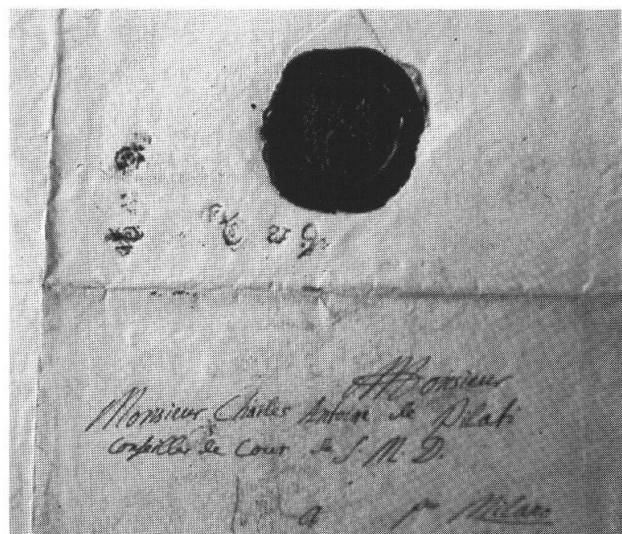 Monsieur
Monsieur Charles Antoine de Pilati
Conseiller de Cour de S. M. D.
a Milano